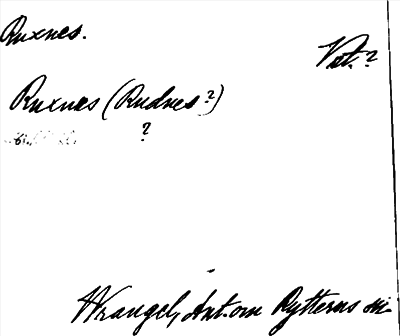 Ruxnes.
Vat.?
Ruxnes (Rudnes?)
?
Wrangel, Ant. om Rytterns